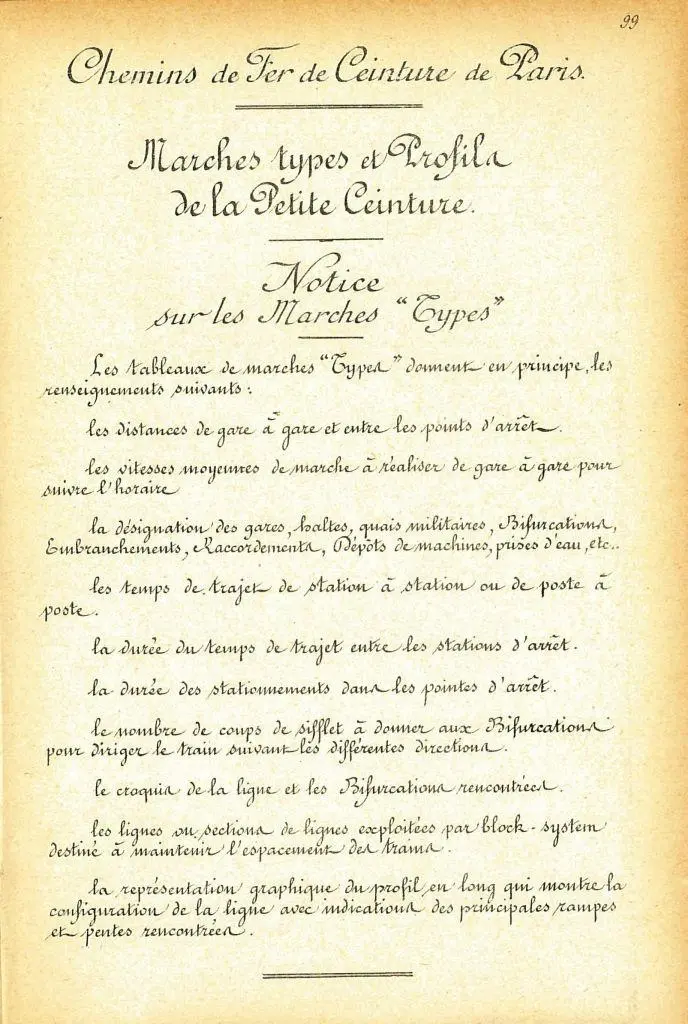 99
Chemins de Fer de Ceinture de Paris.
Marches types et Profils
de la Petite Ceinture.
Notice
sur les Marches "Types"
Les tableaux de marches "Types" donnent en principe, les
renseignements suivants :
les distances de gare à gare et entre les points d'arrêt.
les vitesses moyennes de marche à réaliser de gare à gare pour
suivre l'horaire
la désignation des gares, haltes, quais militaires, Bifurcations,
Embranchements, Raccordements, Dépôts de machines, prises d'eau, etc..
les temps de trajet de station à station ou de poste à
poste.
la durée du temps de trajet entre les stations d'arrêt.
la durée des stationnements dans les pointes d'arrêt.
le nombre de coups de sifflet à donner aux Bifurcations
pour diriger le train suivant les différentes directions.
le croquis de la ligne et les Bifurcations rencontrées.
les lignes ou sections de lignes exploitées par block-system
destiné à maintenir l'espacement des trains.
la représentation graphique du profil en long qui montre la
configuration de la ligne avec indications des principales rampes
et pentes rencontrées.